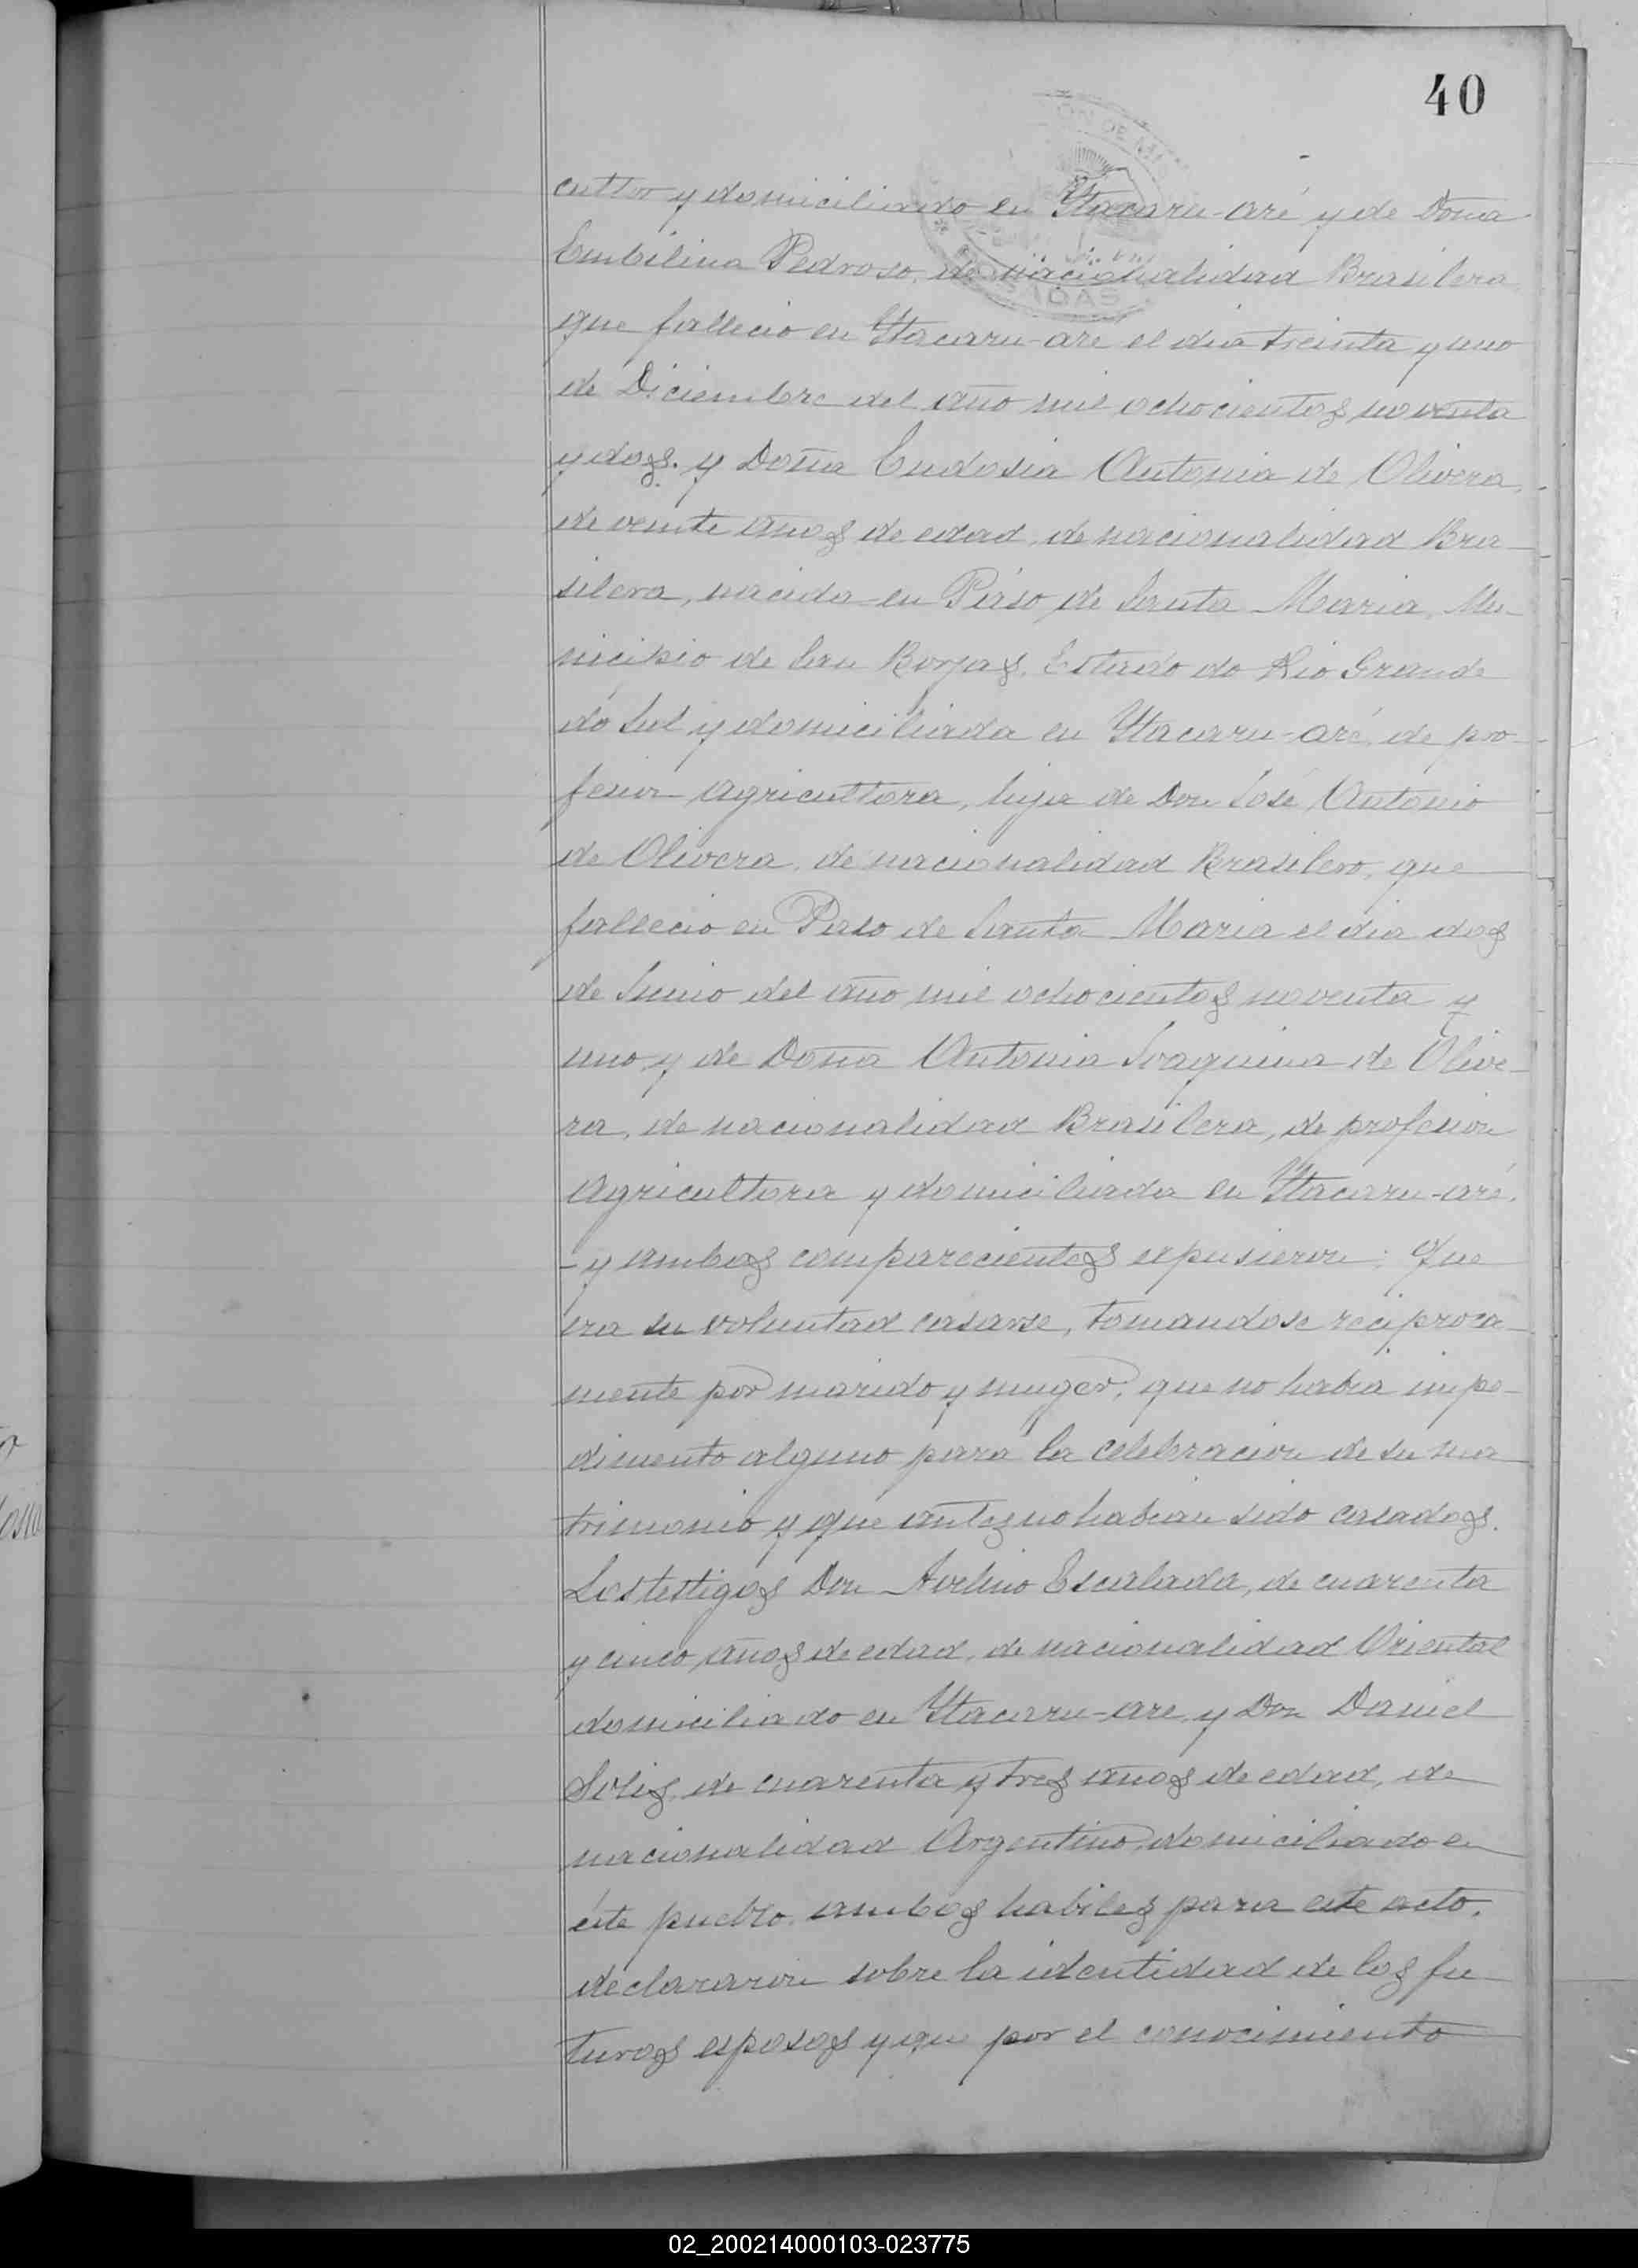 40
cultor y domiciliado en Ytacaru-aré y de Doña
Embilina Pedroso, de nacionalidad Brasilera
que fallecio en Ytacaru-are el dia treinta y uno
de Diciembre del año mil ochocientos noventa
y dos. y Doña Eudosia Antonia de Olivera,
de veinte años de edad, de nacionalidad Bra-
silera, nacida en Páso de Santa Maria, Mu-
nicipio de San Borjas, Estado do Rio Grande
dó Sul y domiciliada en Ytacaru-aré, de pro-
fesion agricultora, hija de Don José Antonio
de Olivera, de nacionalidad Brasilero, que
fallecio en Paso de Santa Maria el dia dos
de Junio del año mil ochocientos noventa y
uno y de Doña Antonia Joaquina de Olive-
ra, de nacionalidad Brasilera, de profesion
Agricultora y domiciliada en Ytacaru-aré.
- y ambos comparecientes expusieron: Que
era su voluntad casarse, tomandose reciproca-
mente por marido y muger, que no habia impe-
dimento alguno para la celebracion de su ma-
trimonio y que antes no habian sido casados.
Los testigos Don Avelino Escalada, de cuarenta
y cinco años de edad, de nacionalidad Oriental
domiciliado en Ytacaru-are y Don Daniel
Solis, de cuarenta y tres años de edad, de
nacionalidad Argentino, domiciliado en
éste pueblo, ambos habiles para este acto,
declararon sobre la identidad de los fu-
turos esposos y que por el conocimiento
02_200214000103-023775